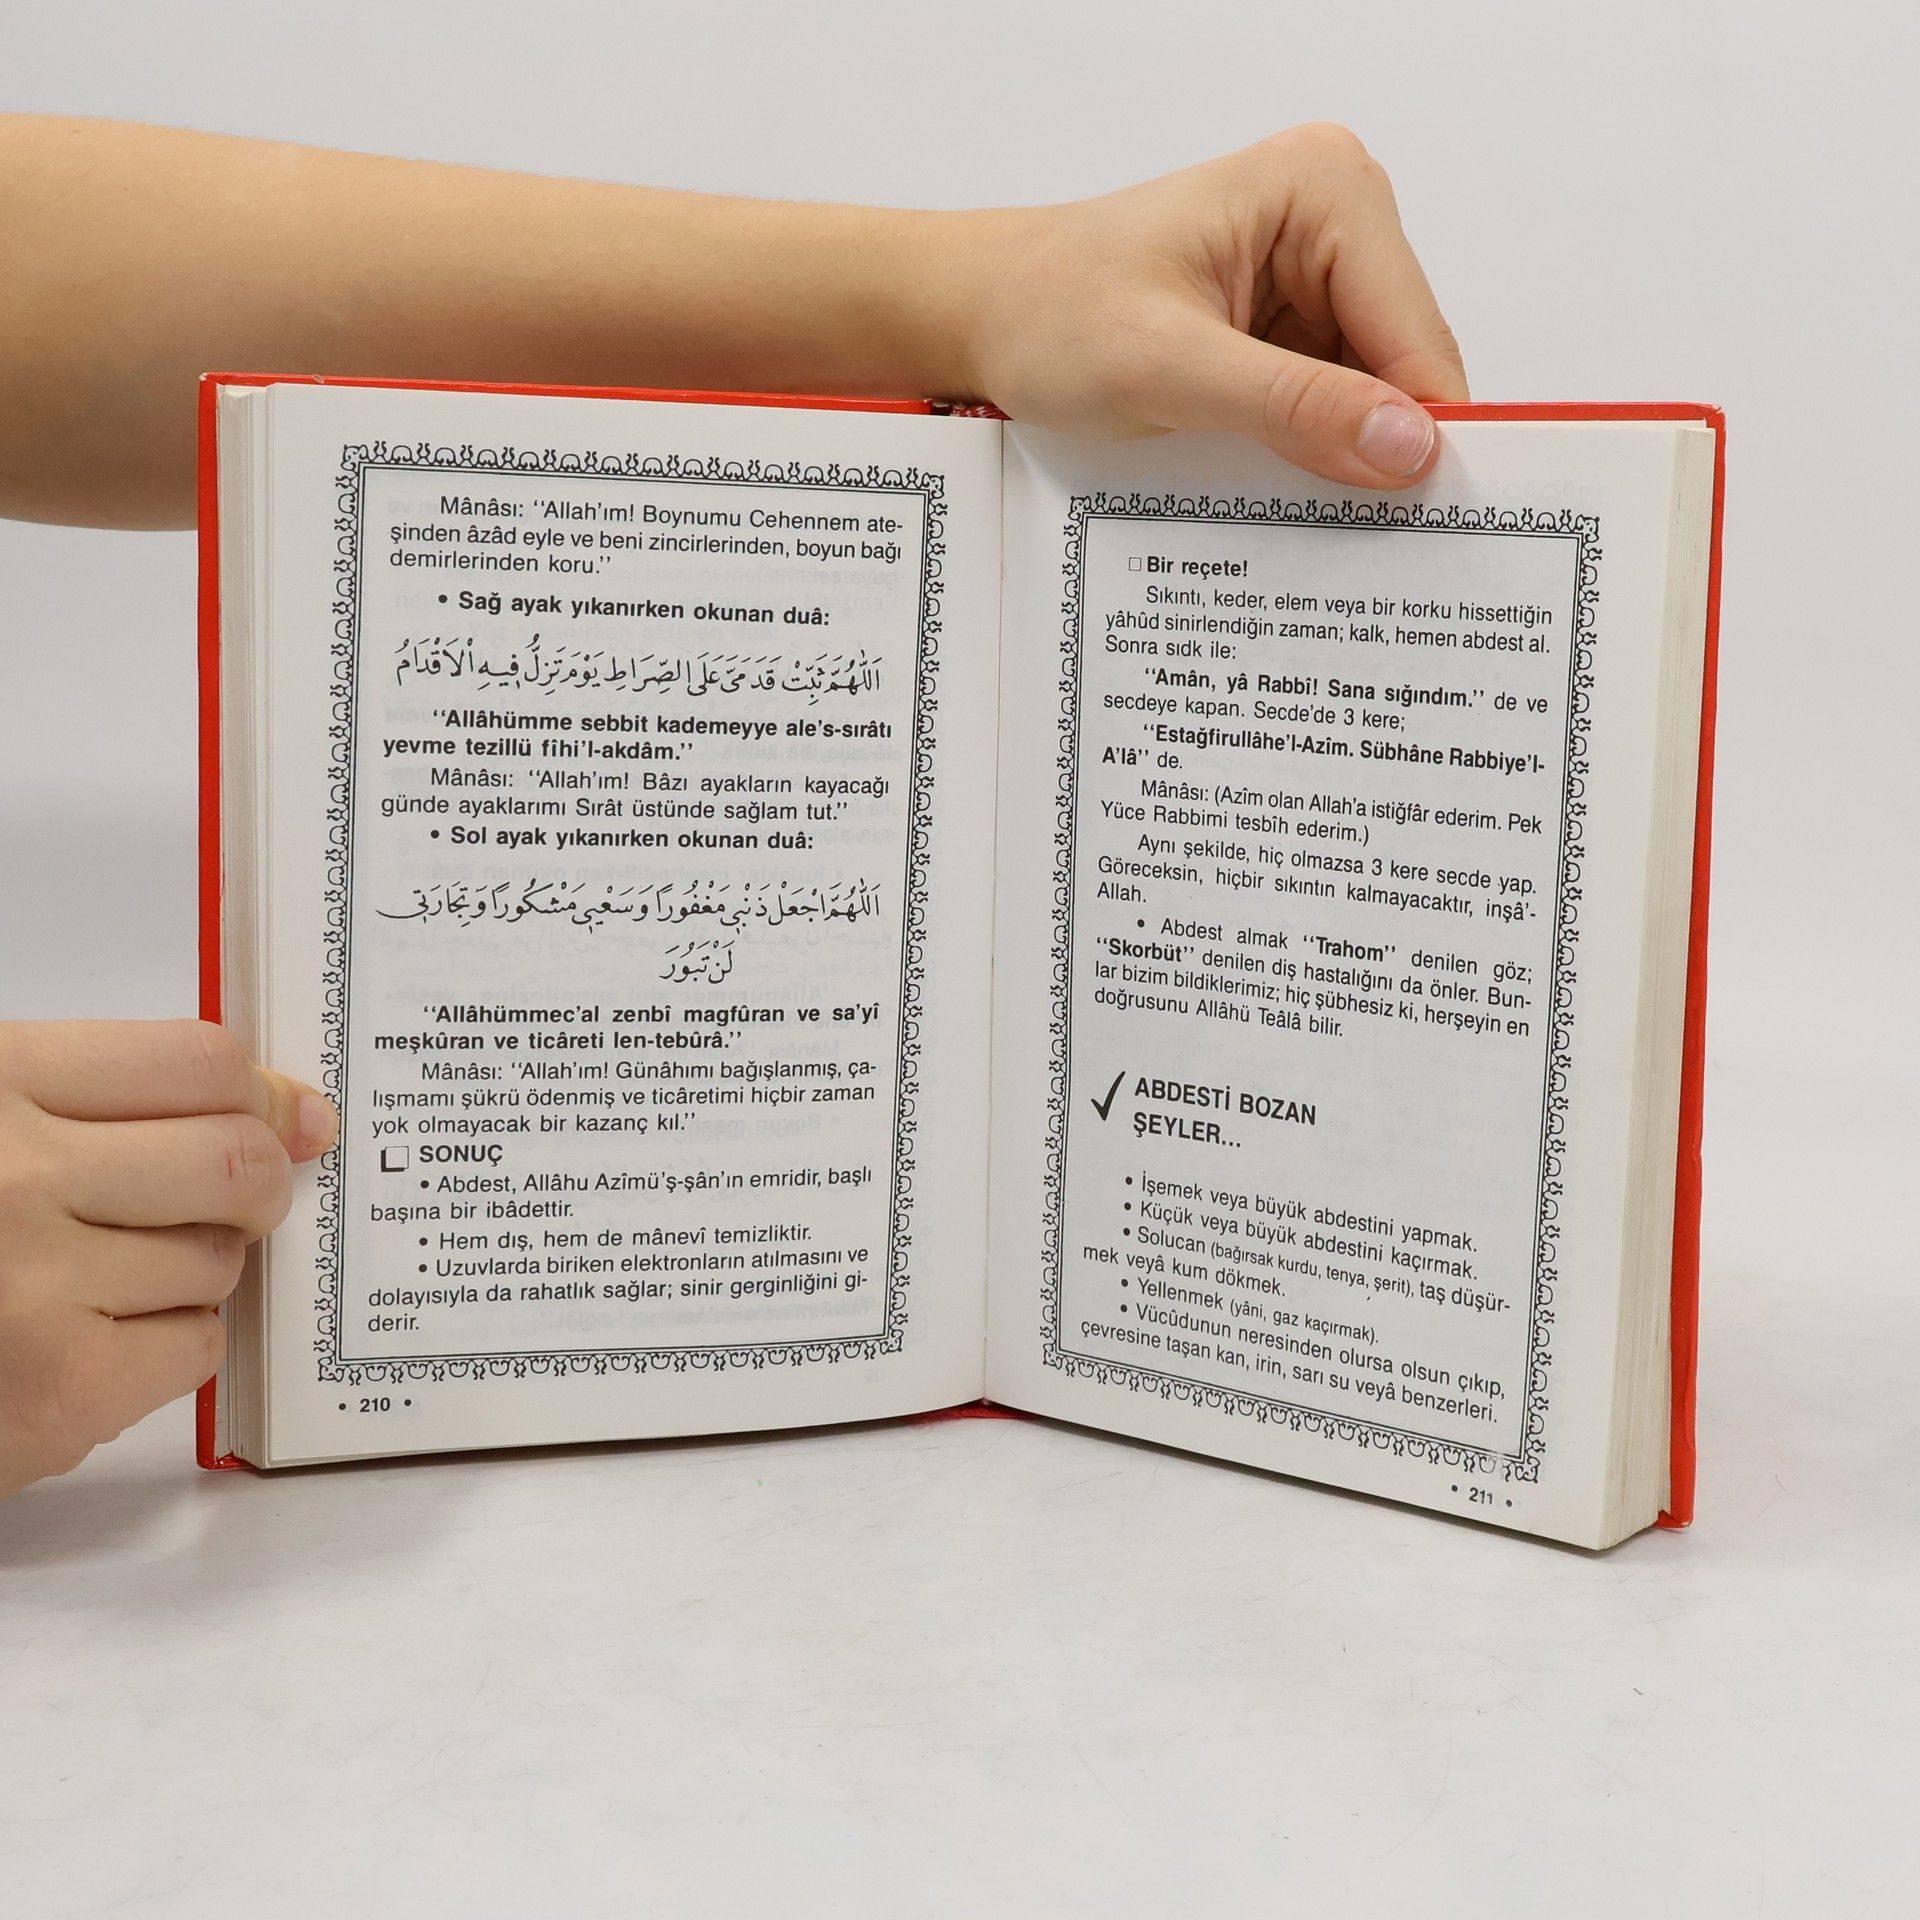 Mânâsı: ‘‘Allah’ım! Boynumu Cehennem ate-
şinden âzâd eyle ve beni zincirlerinden, boyun bağı
demirlerinden koru.’’
• Sağ ayak yıkanırken okunan duâ:
اَللّٰهُمَّ ثَبِّتْ قَدَمَىَّ عَلَى الصِّرَاطِ يَوْمَ تَزِلُّ فِيهِ اْلاَقْدَامُ
‘‘Allâhümme sebbit kademeyye ale’s-sırâtı
yevme tezillü fîhi’l-akdâm.’’
Mânâsı: ‘‘Allah’ım! Bâzı ayakların kayacağı
günde ayaklarımı Sırât üstünde sağlam tut.’’
• Sol ayak yıkanırken okunan duâ:
اَللّٰهُمَّ اجْعَلْ ذَنْبِي مَغْفُورًا وَسَعْيِي مَشْكُورًا وَتِجَارَتِي
لَنْ تَبُورَ
‘‘Allâhümmec’al zenbî magfûran ve sa’yî
meşkûran ve ticâreti len-tebûrâ.’’
Mânâsı: ‘‘Allah’ım! Günâhımı bağışlanmış, ça-
lışmamı şükrü ödenmiş ve ticâretimi hiçbir zaman
yok olmayacak bir kazanç kıl.’’
SONUÇ
• Abdest, Allâhu Azîmü’ş-şân’ın emridir, başlı
başına bir ibâdettir.
• Hem dış, hem de mânevî temizliktir.
• Uzuvlarda biriken elektronların atılmasını ve
dolayısıyla da rahatlık sağlar; sinir gerginliğini gi-
derir.
• 210 •
□ Bir reçete!
Sıkıntı, keder, elem veya bir korku hissettiğin
yâhûd sinirlendiğin zaman; kalk, hemen abdest al.
Sonra sıdk ile:
‘‘Amân, yâ Rabbî! Sana sığındım.’’ de ve
secdeye kapan. Secde’de 3 kere;
‘‘Estağfirullâhe’l-Azîm. Sübhâne Rabbiye’l-
A’lâ’’ de.
Mânâsı: (Azîm olan Allah’a istiğfâr ederim. Pek
Yüce Rabbimi tesbîh ederim.)
Aynı şekilde, hiç olmazsa 3 kere secde yap.
Göreceksin, hiçbir sıkıntın kalmayacaktır, inşâ’-
Allah.
• Abdest almak ‘‘Trahom’’ denilen göz;
‘‘Skorbüt’’ denilen diş hastalığını da önler. Bun-
lar bizim bildiklerimiz; hiç şübhesiz ki, herşeyin en
doğrusunu Allâhü Teâlâ bilir.
✓ ABDESTİ BOZAN
ŞEYLER...
• İşemek veya büyük abdestini yapmak.
• Küçük veya büyük abdestini kaçırmak.
• Solucan (bağırsak kurdu, tenya, şerit), taş düşür-
mek veyâ kum dökmek.
• Yellenmek (yâni, gaz kaçırmak).
• Vücûdunun neresinden olursa olsun çıkıp,
çevresine taşan kan, irin, sarı su veyâ benzerleri.
• 211 •